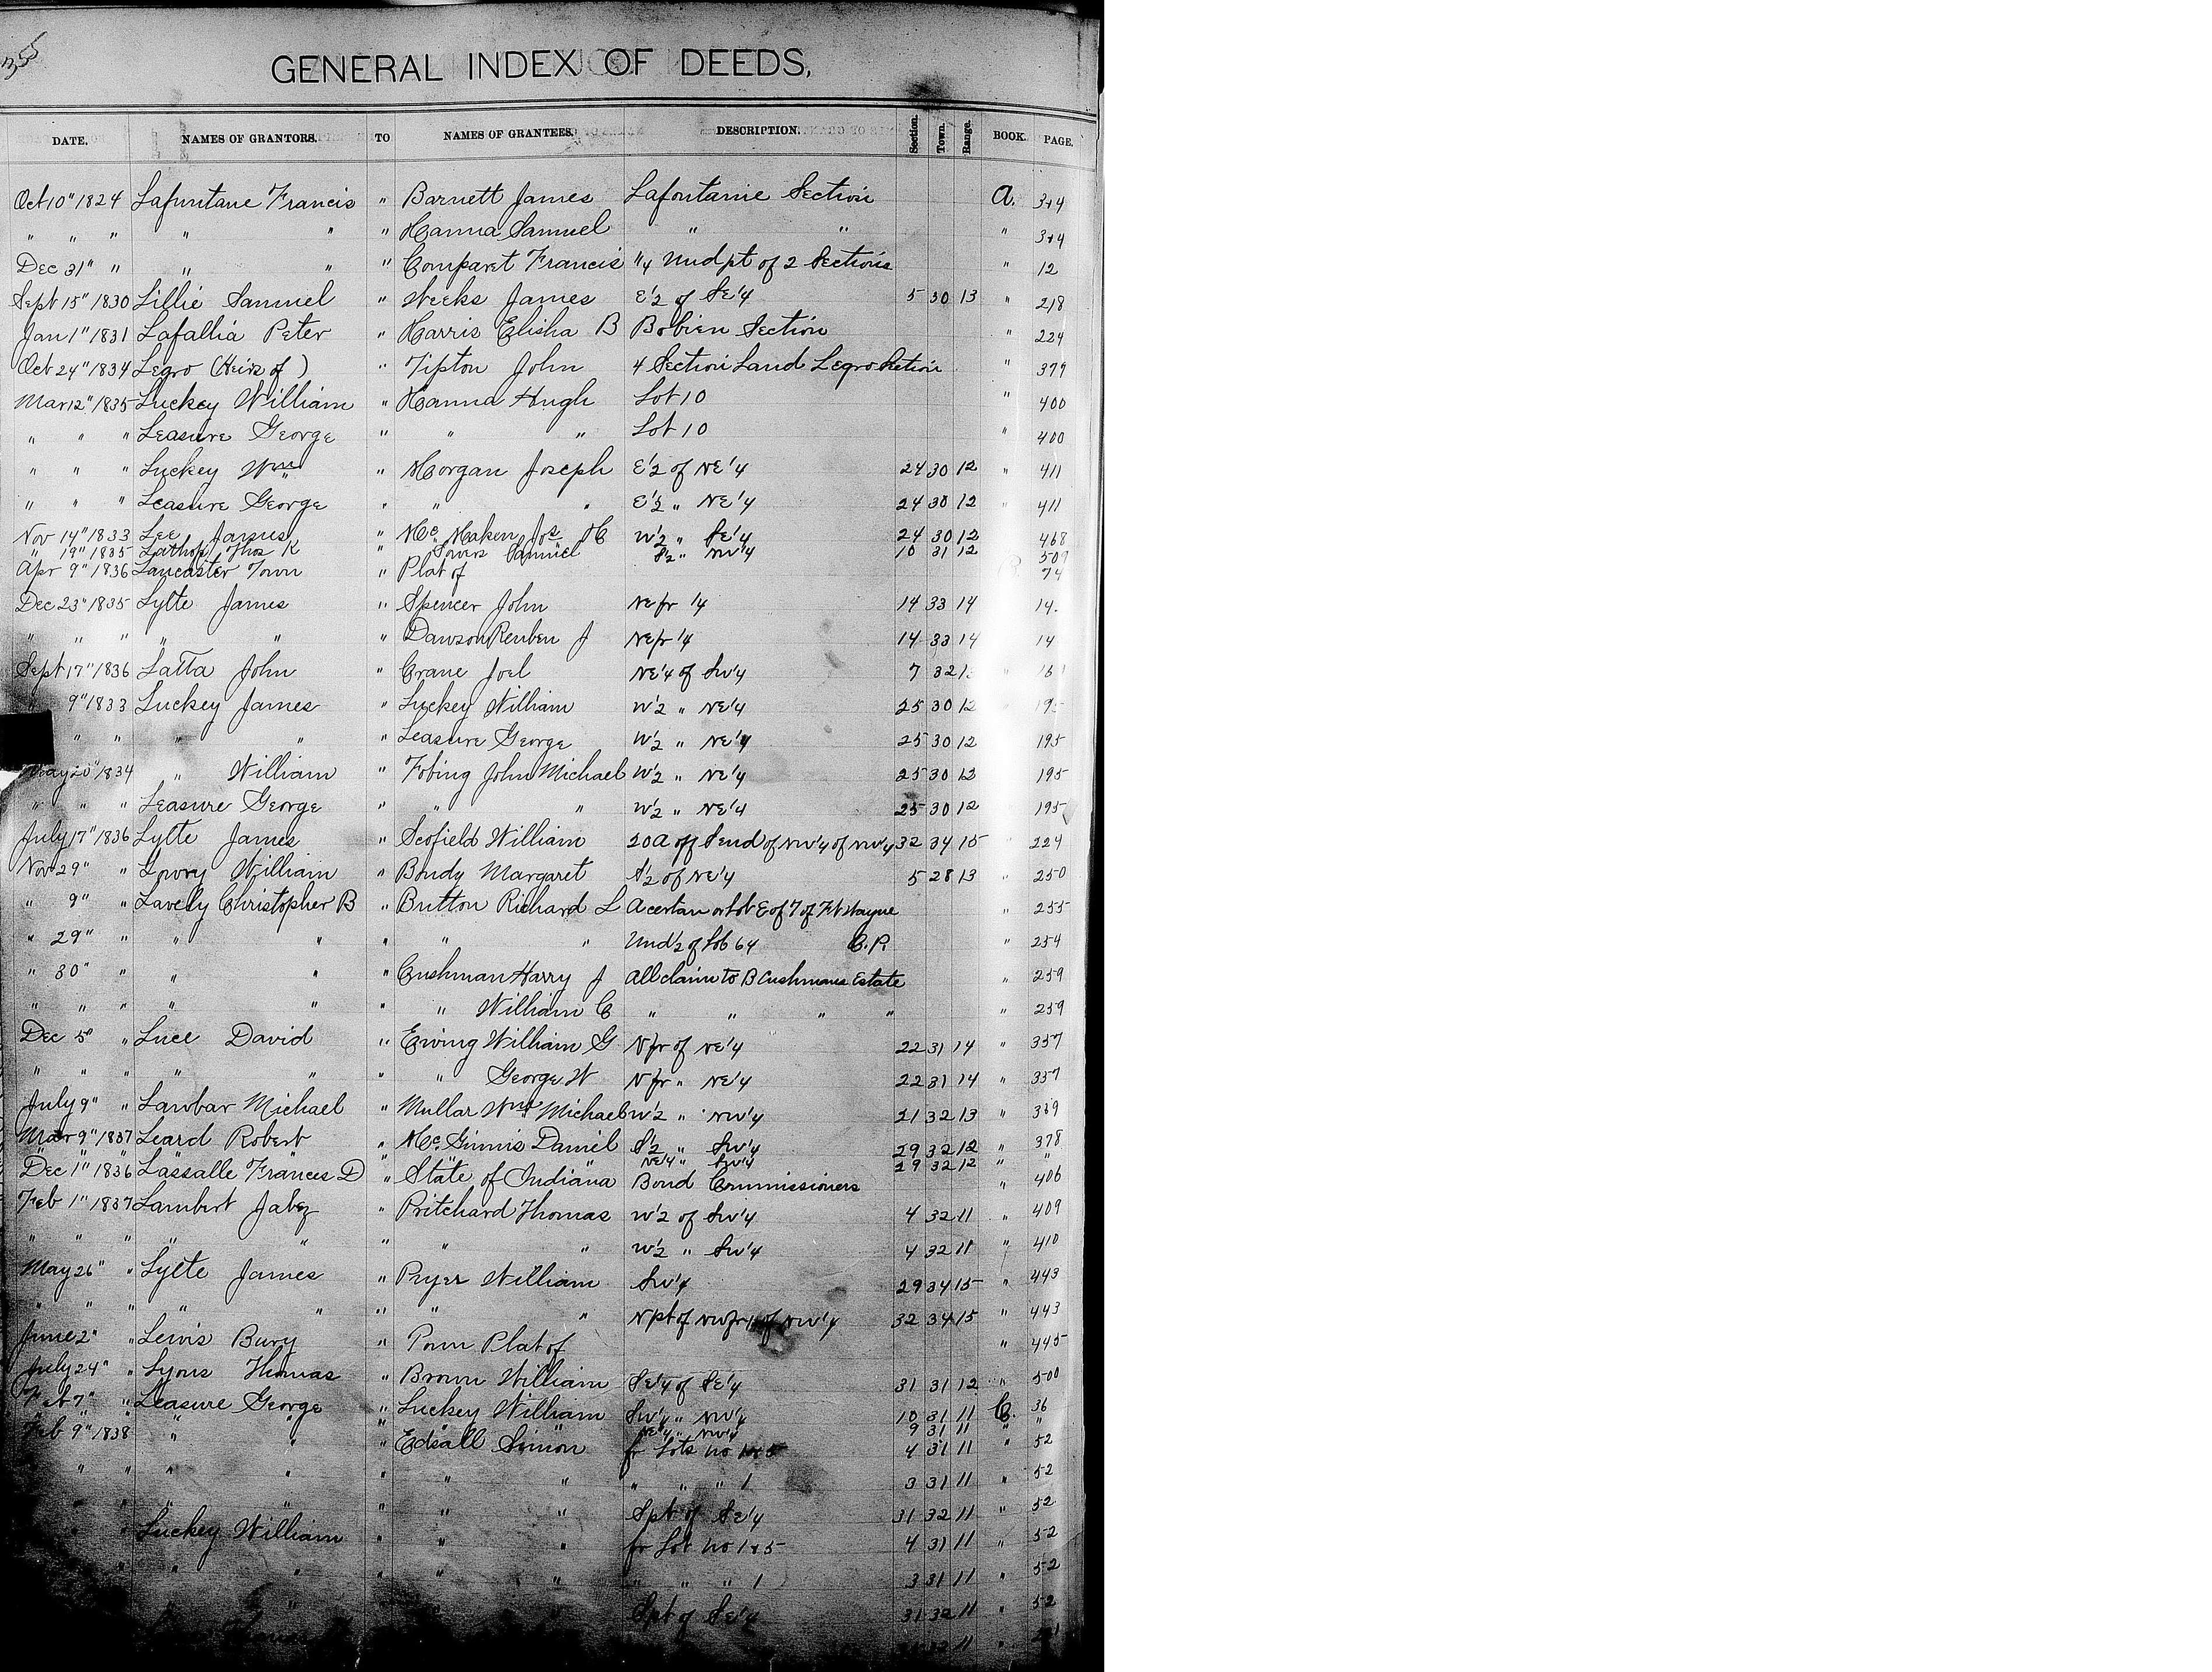 355
GENERAL INDEX OF DEEDS,
DATE. NAMES OF GRANTORS. TO NAMES OF GRANTEES. DESCRIPTION. Section. Town. Range. BOOK. PAGE.
Oct 10" 1824 Lafontane Francis " Barnett James Lafontanie Section A. 314
" " " " " " Hanna Samuel " " " 314
Dec 31" " " " " Comparet Francis 1/4 Undpt of 2 Sections " 12
Sept 15" 1830 Lillie Samuel " Weeks James E1/2 of SE1/4 5 30 13 " 218
Jan 1" 1831 Lafallia Peter " Harris Elisha B Bobien Section " 224
Oct 24" 1834 Legro (Heirs of ) " Tipton John 4 Section Land Legro Section " 379
Mar 12" 1835 Luckey William " Hanna Hugh Lot 10 " 400
" " " Leasure George " " " Lot 10 " 400
" " " Luckey Wm " Morgan Joseph E1/2 of NE1/4 24 30 12 " 411
" " " Leasure George " " " E1/2 " NE1/4 24 30 12 " 411
Nov 14" 1833 Lee James " Mc Maken Jos H W1/2 " SE1/4 24 30 12 468
" 19" 1835 Lathop Thos K " Sowers Samuel S1/2 " NW1/4 10 31 12 509
Apr 9" 1836 Lancaster Town " Plat of B. 74
Dec 23" 1835 Lytte James " Spencer John NE fr 1/4 14 33 14 14.
" " " " " " Dawson Reuben J NE fr 1/4 14 33 14 14
Sept 17" 1836 Latta John " Crane Joel NE1/4 of SW1/4 7 32
9" 1833 Luckey James " Luckey William W1/2 " NE1/4 25 30 12 195
" " " " " Leasure George W1/2 " NE1/4 25 30 12 195
May 20" 1834 " William " Fobing John Michael W1/2 " NE1/4 25 30 12 195
" " " Leasure George " " " W1/2 " NE1/4 25 30 12 195
July 17" 1836 Lytte James " Scofield William 20A off S end of NW1/4 of NW1/4 32 34 15 " 224
Nov 29" " Lowry William " Bondy Margaret S1/2 of NE1/4 5 28 13 " 250
" 9" " Lavely Christopher B " Britton Richard L A certan or lot E of 7 of Ft Wayne " 255
" 29" " " " " " " Und 1/2 of Lot 64 C.P. " 254
" 30" " " " " Cushman Harry J All claim to B Cushmans Estate " 259
" " " " " " " William C " " " " " 259
Dec 5" " Luce David " Ewing William G N fr of NE1/4 22 31 14 " 357
" " " " " " " George W N fr " NE1/4 22 31 14 " 357
July 9" " Lawbar Michael " Mullar Wm Michael W1/2 " NW1/4 21 32 13 " 359
Mar 9" 1837 Leard Robert " Mc Ginnis Daniel S1/2 " SW1/4 29 32 12 " 378
" " " " " " " " NE1/4 " SW1/4 29 32 12 " "
Dec 1" 1836 Lassalle Frances D " State of Indiana Bond Commissioners " 406
Feb 1" 1837 Lambert Jabez " Pritchard Thomas W1/2 of SW1/4 4 32 11 " 409
" " " " " " " " W1/2 " SW1/4 4 32 11 " 410
May 26" " Lytte James " Pryer William SW1/4 29 34 15 " 443
" " " " " " " " N pt of NW fr 1/4 of NW1/4 32 34 15 " 443
June 2" " Lewis Bury " Town Plat of " 445
July 24" " Lyons Thomas " Brown William SE1/4 of SE1/4 31 31 12 " 500
Feb 7" " Leasure George " Luckey William SW1/4 " NW1/4 10 31 11 C. 36
" " " " " " " " NE1/4 " NW1/4 9 31 11 " "
Feb 9" 1838 " " " Edsall Simon fr Lots No 1&5 4 31 11 " 52
" " " " " " " " " " 1 3 31 11 " 52
" " " " " S pt of SE1/4 31 32 11 " 52
" Luckey William " " " fr Lot No 1&5 4 31 11 " 52
" " " " " " " " " 1 3 31 11 " 52
" " " " S pt of SE1/4 31 32 11 " 52
32 11 "